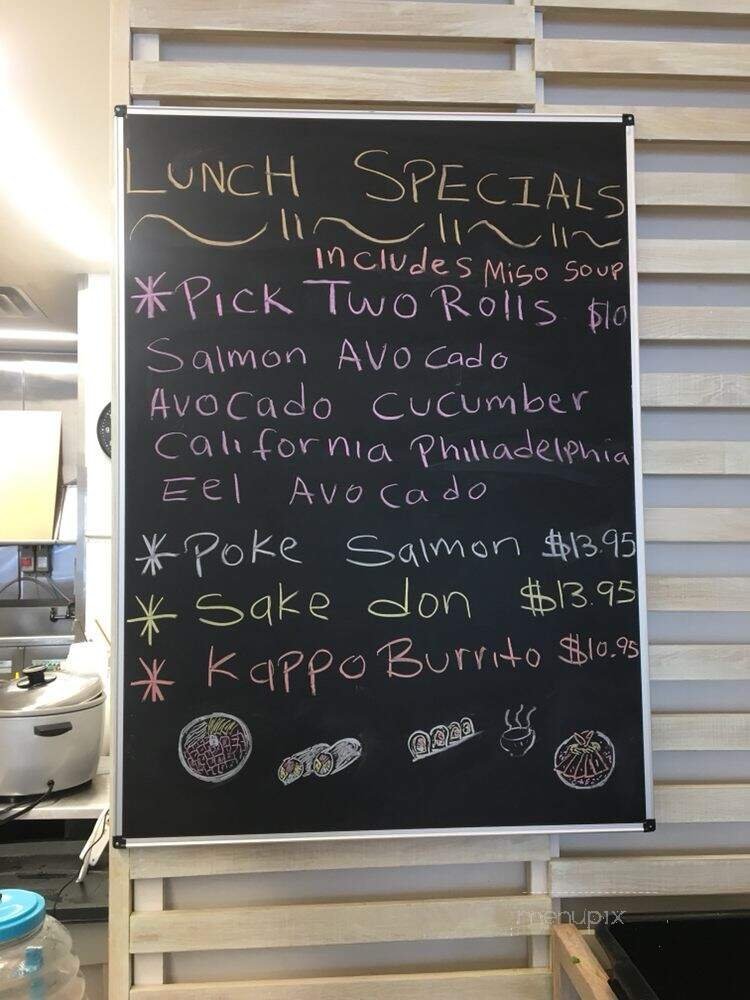 LUNCH SPECIALS
includes Miso Soup
*Pick Two Rolls $10
Salmon Avocado
Avocado Cucumber
California Philladelphia
Eel Avocado
*Poke Salmon $13.95
*Sake don $13.95
*Kappo Burrito $10.95
menupix